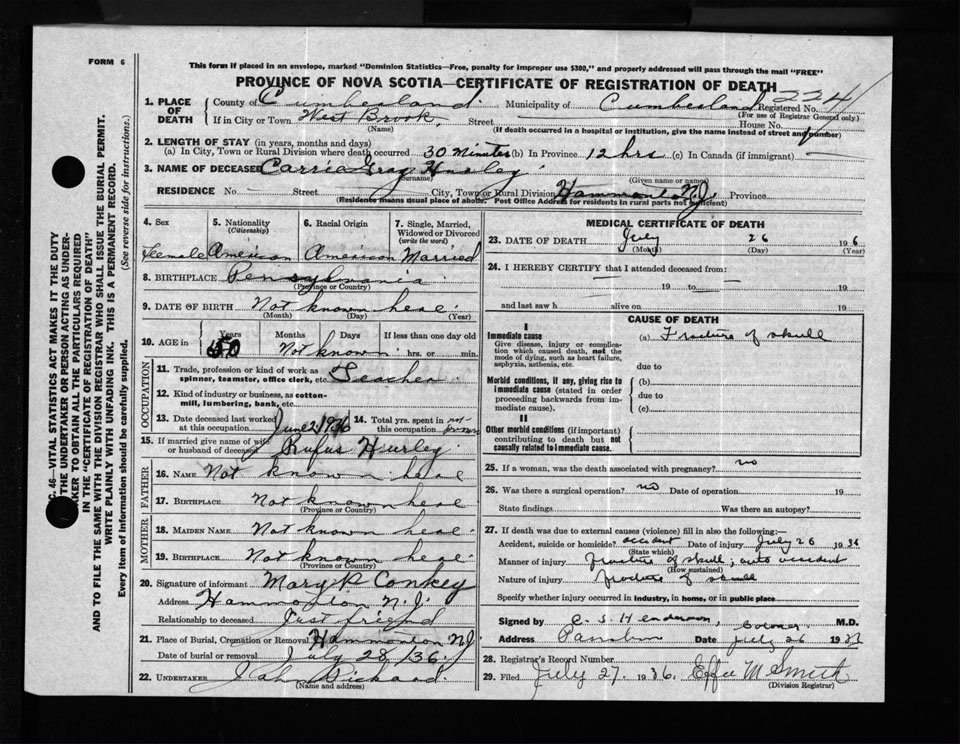 FORM 6
This form if placed in an envelope, marked "Dominion Statistics—Free, penalty for improper use $300," and properly addressed will pass through the mail "FREE"
PROVINCE OF NOVA SCOTIA—CERTIFICATE OF REGISTRATION OF DEATH
1. PLACE OF DEATH County of Cumberland Municipality of Cumberland Registered No. 2241
(For use of Registrar General only)
If in City or Town West Brook Street House No.
(Name) (If death occurred in a hospital or institution, give the name instead of street and number)
2. LENGTH OF STAY (in years, months and days)
(a) In City, Town or Rural Division where death occurred 30 Minutes (b) In Province 12 hrs (c) In Canada (if immigrant) —
3. NAME OF DECEASED Carrie Gray Hurley
(Surname) (Given name or names)
RESIDENCE No — Street City, Town or Rural Division Hammonton N.J. Province
(Residence means usual place of abode. Post Office Address for residents in rural parts not sufficient)
4. Sex 5. Nationality (Citizenship) 6. Racial Origin 7. Single, Married, Widowed or Divorced (write the word)
Female American American Married
8. BIRTHPLACE Pensylvania
(Province or Country)
9. DATE OF BIRTH Not known here
(Month) (Day) (Year)
10. AGE in Years Months Days If less than one day old
50 Not known hrs. or min.
OCCUPATION
11. Trade, profession or kind of work as spinner, teamster, office clerk, etc. Teacher
12. Kind of industry or business, as cotton-mill, lumbering, bank, etc.
13. Date deceased last worked at this occupation June 2, 1936 14. Total yrs. spent in this occupation not known
15. If married give name of wife or husband of deceased Rufus Hurley
FATHER
16. NAME Not known here
17. BIRTHPLACE Not known here
(Province or Country)
MOTHER
18. MAIDEN NAME Not known here
19. BIRTHPLACE Not known here
(Province or Country)
20. Signature of informant Mary P Conkey
Address Hammonton N.J.
Relationship to deceased Just friend
21. Place of Burial, Cremation or Removal Hammonton NJ
Date of burial or removal July 28/36
22. UNDERTAKER
(Name and address)
MEDICAL CERTIFICATE OF DEATH
23. DATE OF DEATH July 26 1936
(Month) (Day) (Year)
24. I HEREBY CERTIFY that I attended deceased from:
— 19 to — 19
and last saw h alive on 19
CAUSE OF DEATH
I
Immediate cause (a) Fracture of skull
Give disease, injury or complication which caused death, not the mode of dying, such as heart failure, asphyxia, asthenia, etc.
due to
Morbid conditions, if any, giving rise to immediate cause (stated in order proceeding backwards from immediate cause).
(b)
due to
(c)
II
Other morbid conditions (if important) contributing to death but not causally related to immediate cause.
25. If a woman, was the death associated with pregnancy? no
26. Was there a surgical operation? no Date of operation 19
State findings Was there an autopsy?
27. If death was due to external causes (violence) fill in also the following:—
Accident, suicide or homicide? accident Date of injury July 26 1936
(State which)
Manner of injury fracture of skull, auto accident
(How sustained)
Nature of injury fracture of skull
Specify whether injury occurred in industry, in home, or in public place
Signed by C. S. Henderson, Coroner M.D.
Address Parrsboro Date July 26 19
28. Registrar's Record Number
29. Filed July 27. 1936. Effie M Smith
(Division Registrar)
C. 46—VITAL STATISTICS ACT MAKES IT THE DUTY
THE UNDERTAKER OR PERSON ACTING AS UNDER-
TAKER TO OBTAIN ALL THE PARTICULARS REQUIRED
IN THE "CERTIFICATE OF REGISTRATION OF DEATH"
AND TO FILE THE SAME WITH THE DIVISION REGISTRAR WHO SHALL ISSUE THE BURIAL PERMIT.
WRITE PLAINLY WITH UNFADING INK. THIS IS A PERMANENT RECORD.
Every item of information should be carefully supplied. (See reverse side for instructions.)